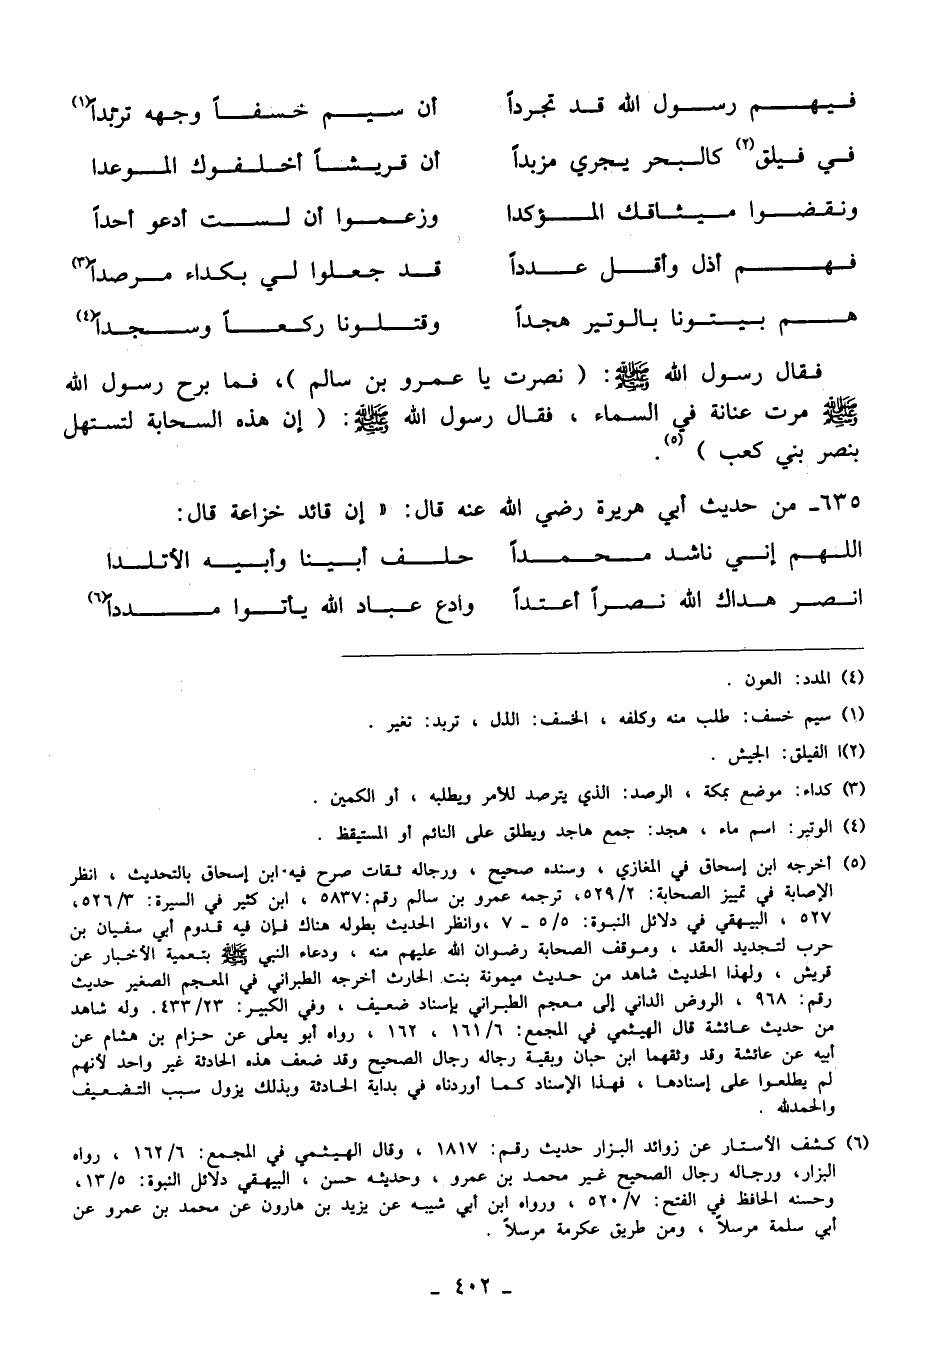 فيهم رسول الله قد تجرداً أن سيم خسفاً وجهه تربّداً(١)
في فيلق(٢) كالبحر يجري مزبداً أن قريشاً أخلفوك الموعدا
ونقضوا ميثاقك المؤكدا وزعموا أن لست أدعو أحداً
فهم أذل وأقل عدداً قد جعلوا لي بكداء مرصداً(٣)
هم بيتونا بالوتير هجداً وقتلونا ركعاً وسجداً(٤)
فقال رسول الله ﷺ: ( نصرت يا عمرو بن سالم )، فما برح رسول الله
ﷺ مرت عنانة في السماء ، فقال رسول الله ﷺ: ( إن هذه السحابة لتستهل
بنصر بني كعب ) (٥).
٦٣٥ـ من حديث أبي هريرة رضي الله عنه قال: « إن قائد خزاعة قال:
اللهم إني ناشد محمداً حلف أبينا وأبيه الأتلدا
انصر هداك الله نصراً أعتداً وادع عباد الله يأتوا مدداً(٦)
(٤) المدد: العون .
(١) سيم خسف: طلب منه وكلفه ، الخسف: الذل ، تربد: تغير .
(٢)ا الفيلق: الجيش .
(٣) كداء: موضع بمكة ، الرصد: الذي يترصد للأمر ويطلبه ، أو الكمين .
(٤) الوتير: اسم ماء ، هجد: جمع هاجد ويطلق على النائم أو المستيقظ .
(٥) أخرجه ابن إسحاق في المغازي ، وسنده صحيح ، ورجاله ثقات صرح فيه ابن إسحاق بالتحديث ، انظر
الإصابة في تمييز الصحابة: ٥٢٩/٢، ترجمه عمرو بن سالم رقم:٥٨٣٧ ، ابن كثير في السيرة: ٥٢٦/٣،
٥٢٧ ، البيهقي في دلائل النبوة: ٥/٥ ـ ٧ ،وانظر الحديث بطوله هناك فإن فيه قدوم أبي سفيان بن
حرب لتجديد العقد ، وموقف الصحابة رضوان الله عليهم منه ، ودعاء النبي ﷺ بتعمية الأخبار عن
قريش ، ولهذا الحديث شاهد من حديث ميمونة بنت الحارث أخرجه الطبراني في المعجم الصغير حديث
رقم: ٩٦٨ ، الروض الداني إلى معجم الطبراني بإسناد ضعيف ، وفي الكبير: ٤٣٣/٢٣. وله شاهد
من حديث عائشة قال الهيثمي في المجمع: ١٦١/٦ ، ١٦٢ ، رواه أبو يعلى عن حزام بن هشام عن
أبيه عن عائشة وقد وثقهما ابن حبان وبقية رجاله رجال الصحيح وقد ضعف هذه الحادثة غير واحد لأنهم
لم يطلعوا على إسنادها ، فهذا الإسناد كما أوردناه في بداية الحادثة وبذلك يزول سبب التضعيف
والحمدلله .
(٦) كشف الأستار عن زوائد البزار حديث رقم: ١٨١٧ ، وقال الهيثمي في المجمع: ١٦٢/٦ ، رواه
البزار، ورجاله رجال الصحيح غير محمد بن عمرو ، وحديثه حسن ، البيهقي دلائل النبوة: ١٣/٥،
وحسنه الحافظ في الفتح: ٥٢٠/٧ ، ورواه ابن أبي شيبه عن يزيد بن هارون عن محمد بن عمرو عن
أبي سلمة مرسلاً ، ومن طريق عكرمة مرسلاً .
ـ ٤٠٢ ـ